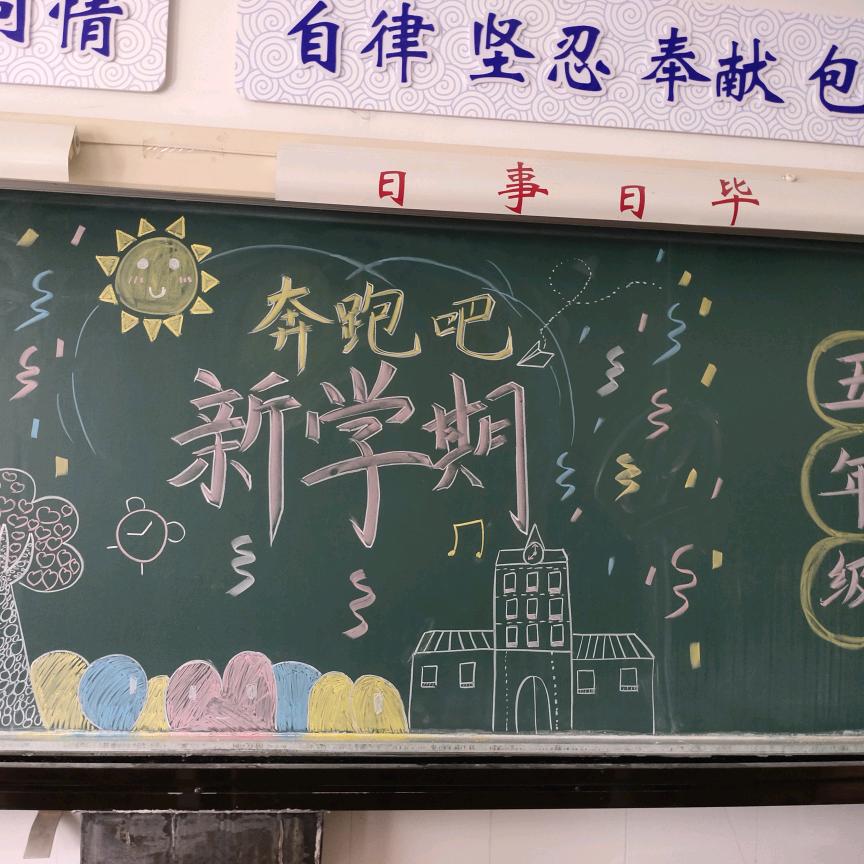 情
自律 坚忍 奉献 包
日事日毕
奔跑吧
新学期
五年级